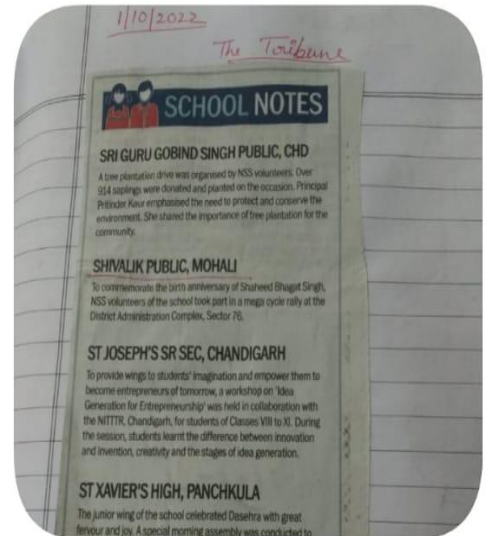 1/10/2022
The Toribune
SCHOOL NOTES
SRI GURU GOBIND SINGH PUBLIC, CHD
A tree plantation drive was organised by NSS volunteers. Over
914 saplings were donated and planted on the occasion. Principal
Pritinder Kaur emphasised the need to protect and conserve the
environment. She shared the importance of tree plantation for the
community.
SHIVALIK PUBLIC, MOHALI
To commemorate the birth anniversary of Shaheed Bhagat Singh,
NSS volunteers of the school took part in a mega cycle rally at the
District Administration Complex, Sector 76.
ST JOSEPH'S SR SEC, CHANDIGARH
To provide wings to students' imagination and empower them to
become entrepreneurs of tomorrow, a workshop on 'Idea
Generation for Entrepreneurship' was held in collaboration with
the NITTTR, Chandigarh, for students of Classes VIII to XI. During
the session, students learnt the difference between innovation
and invention, creativity and the stages of idea generation.
ST XAVIER'S HIGH, PANCHKULA
The junior wing of the school celebrated Dasehra with great
fervour and joy. A special morning assembly was conducted to